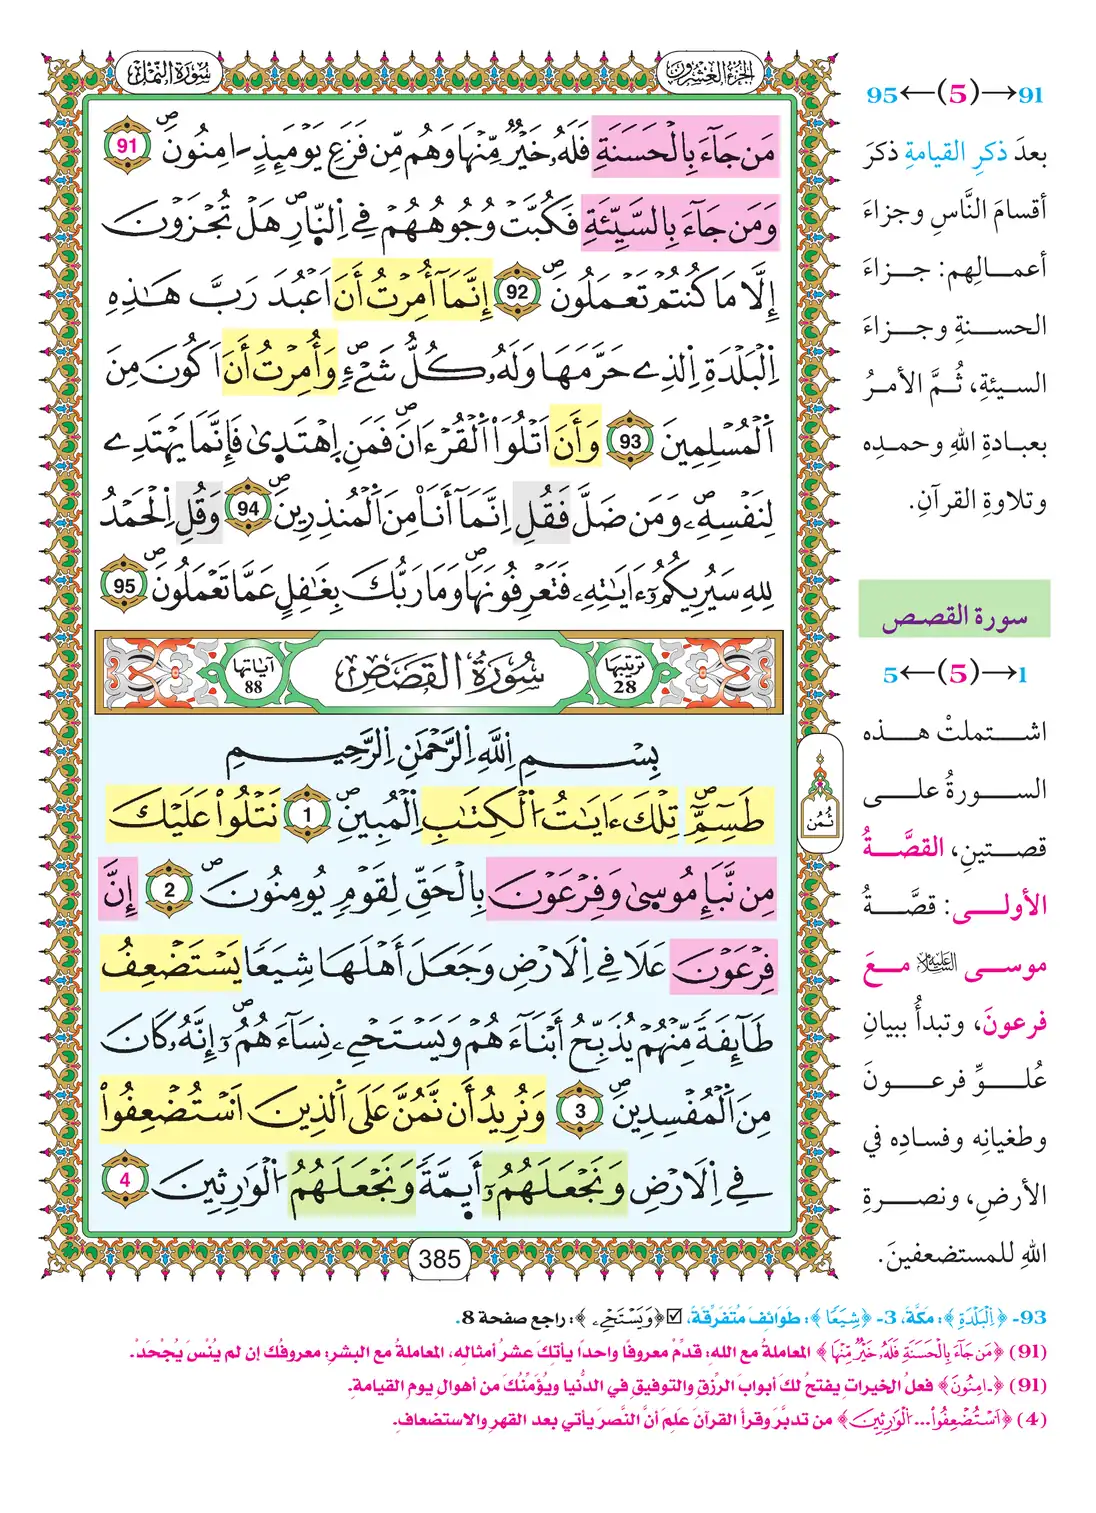 الجزء العشرون
سورة النمل
مَن جَآءَ بِالْحَسَنَةِ فَلَهُۥ خَيْرٌ مِّنْهَا وَهُم مِّن فَزَعِ يَوْمَئِذٍ ـَامِنُونَۖ 91
وَمَن جَآءَ بِالسَّيِّئَةِ فَكُبَّتْ وُجُوهُهُمْ فِے اِ۬لنّ۪ارِۖ هَلْ تُجْزَوْنَ
إِلَّا مَا كُنتُمْ تَعْمَلُونَۖ 92 إِنَّمَآ أُمِرْتُ أَنَ اَعْبُدَ رَبَّ هَٰذِهِ
اِ۬لْبَلْدَةِ اِ۬لذِے حَرَّمَهَا وَلَهُۥ كُلُّ شَےْءٖۖ وَأُمِرْتُ أَنَ اَكُونَ مِنَ
اَ۬لْمُسْلِمِينَ 93 وَأَنَ اَتْلُوَا۟ اَ۬لْقُرْءَانَۖ فَمَنِ اِ۪هْتَد۪ىٰ فَإِنَّمَا يَهْتَدِے
لِنَفْسِهِۦۖ وَمَن ضَلَّ فَقُلِ اِنَّمَآ أَنَا۠ مِنَ اَ۬لْمُنذِرِينَۖ 94 وَقُلِ اِ۬لْحَمْدُ
لِلهِ سَيُرِيكُمُۥٓ ءَايَٰتِهِۦ فَتَعْرِفُونَهَاۖ وَمَا رَبُّكَ بِغَٰفِلٍ عَمَّا تَعْمَلُونَۖ 95
ترتيبها 28
سُورَةُ القَصَصِ
آياتها 88
بِسْمِ اِ۬للَّهِ اِ۬لرَّحْمَٰنِ اِ۬لرَّحِيمِ
طَسِٓمِّٓۖ تِلْكَ ءَايَٰتُ اُ۬لْكِتَٰبِ اِ۬لْمُبِينِۖ 1 نَتْلُوا۟ عَلَيْكَ
مِن نَّبَإِ مُوس۪ىٰ وَفِرْعَوْنَ بِالْحَقِّ لِقَوْمٖ يُومِنُونَۖ 2 إِنَّ
فِرْعَوْنَ عَلَا فِے اِ۬لَارْضِ وَجَعَلَ أَهْلَهَا شِيَعاٗ يَسْتَضْعِفُ
طَآئِفَةٗ مِّنْهُمْ يُذَبِّحُ أَبْنَآءَهُمْ وَيَسْتَحْيِۦ نِسَآءَهُمُۥٓۖ إِنَّهُۥ كَانَ
مِنَ اَ۬لْمُفْسِدِينَۖ 3 وَنُرِيدُ أَن نَّمُنَّ عَلَى اَ۬لذِينَ اَ۟سْتُضْعِفُوا۟
فِے اِ۬لَارْضِ وَنَجْعَلَهُمُۥٓ أَيِمَّةٗ وَنَجْعَلَهُمُ اُ۬لْوَٰرِثِينَ 4
ثُمُن
385
91→(5)←95
بعدَ ذكرِ القيامةِ ذكرَ
أقسامَ النَّاسِ وجزاءَ
أعمالِهم: جزاءَ
الحسنةِ وجزاءَ
السيئةِ، ثُمَّ الأمرُ
بعبادةِ اللهِ وحمدِه
وتلاوةِ القرآنِ.
سورة القصص
1→(5)←5
اشتملتْ هذه
السورةُ على
قصتينِ، القصَّةُ
الأولى: قصَّةُ
موسى عليه السلام معَ
فرعونَ، وتبدأُ ببيانِ
عُلوِّ فرعونَ
وطغيانِه وفسادِه في
الأرضِ، ونصرةِ
اللهِ للمستضعفينَ.
93- ﴿اِ۬لْبَلْدَةِ﴾: مكَّةَ، 3- ﴿شِيَعاٗ﴾: طَوَائِفَ مُتَفَرِّقَةً، ☑ ﴿وَيَسْتَحْيِۦ﴾: راجع صفحة 8.
(91) ﴿مَن جَآءَ بِالْحَسَنَةِ فَلَهُۥ خَيْرٌ مِّنْهَا﴾ المعاملةُ مع اللهِ: قدِّمْ معروفًا واحداً يأتكَ عشرُ أمثالِه، المعاملةُ مع البشرِ: معروفُك إن لم يُنْسَ يُجْحَدْ.
(91) ﴿ـَامِنُونَ﴾ فعلُ الخيراتِ يفتحُ لكَ أبوابَ الرِّزقِ والتوفيقِ في الدُّنيا ويُؤَمِّنُكَ من أهوالِ يومِ القيامةِ.
(4) ﴿اَ۟سْتُضْعِفُوا۟... اَ۬لْوَٰرِثِينَ﴾ من تدبَّرَ وقرأَ القرآنَ علمَ أنَّ النَّصرَ يأتي بعد القهرِ والاستضعافِ.